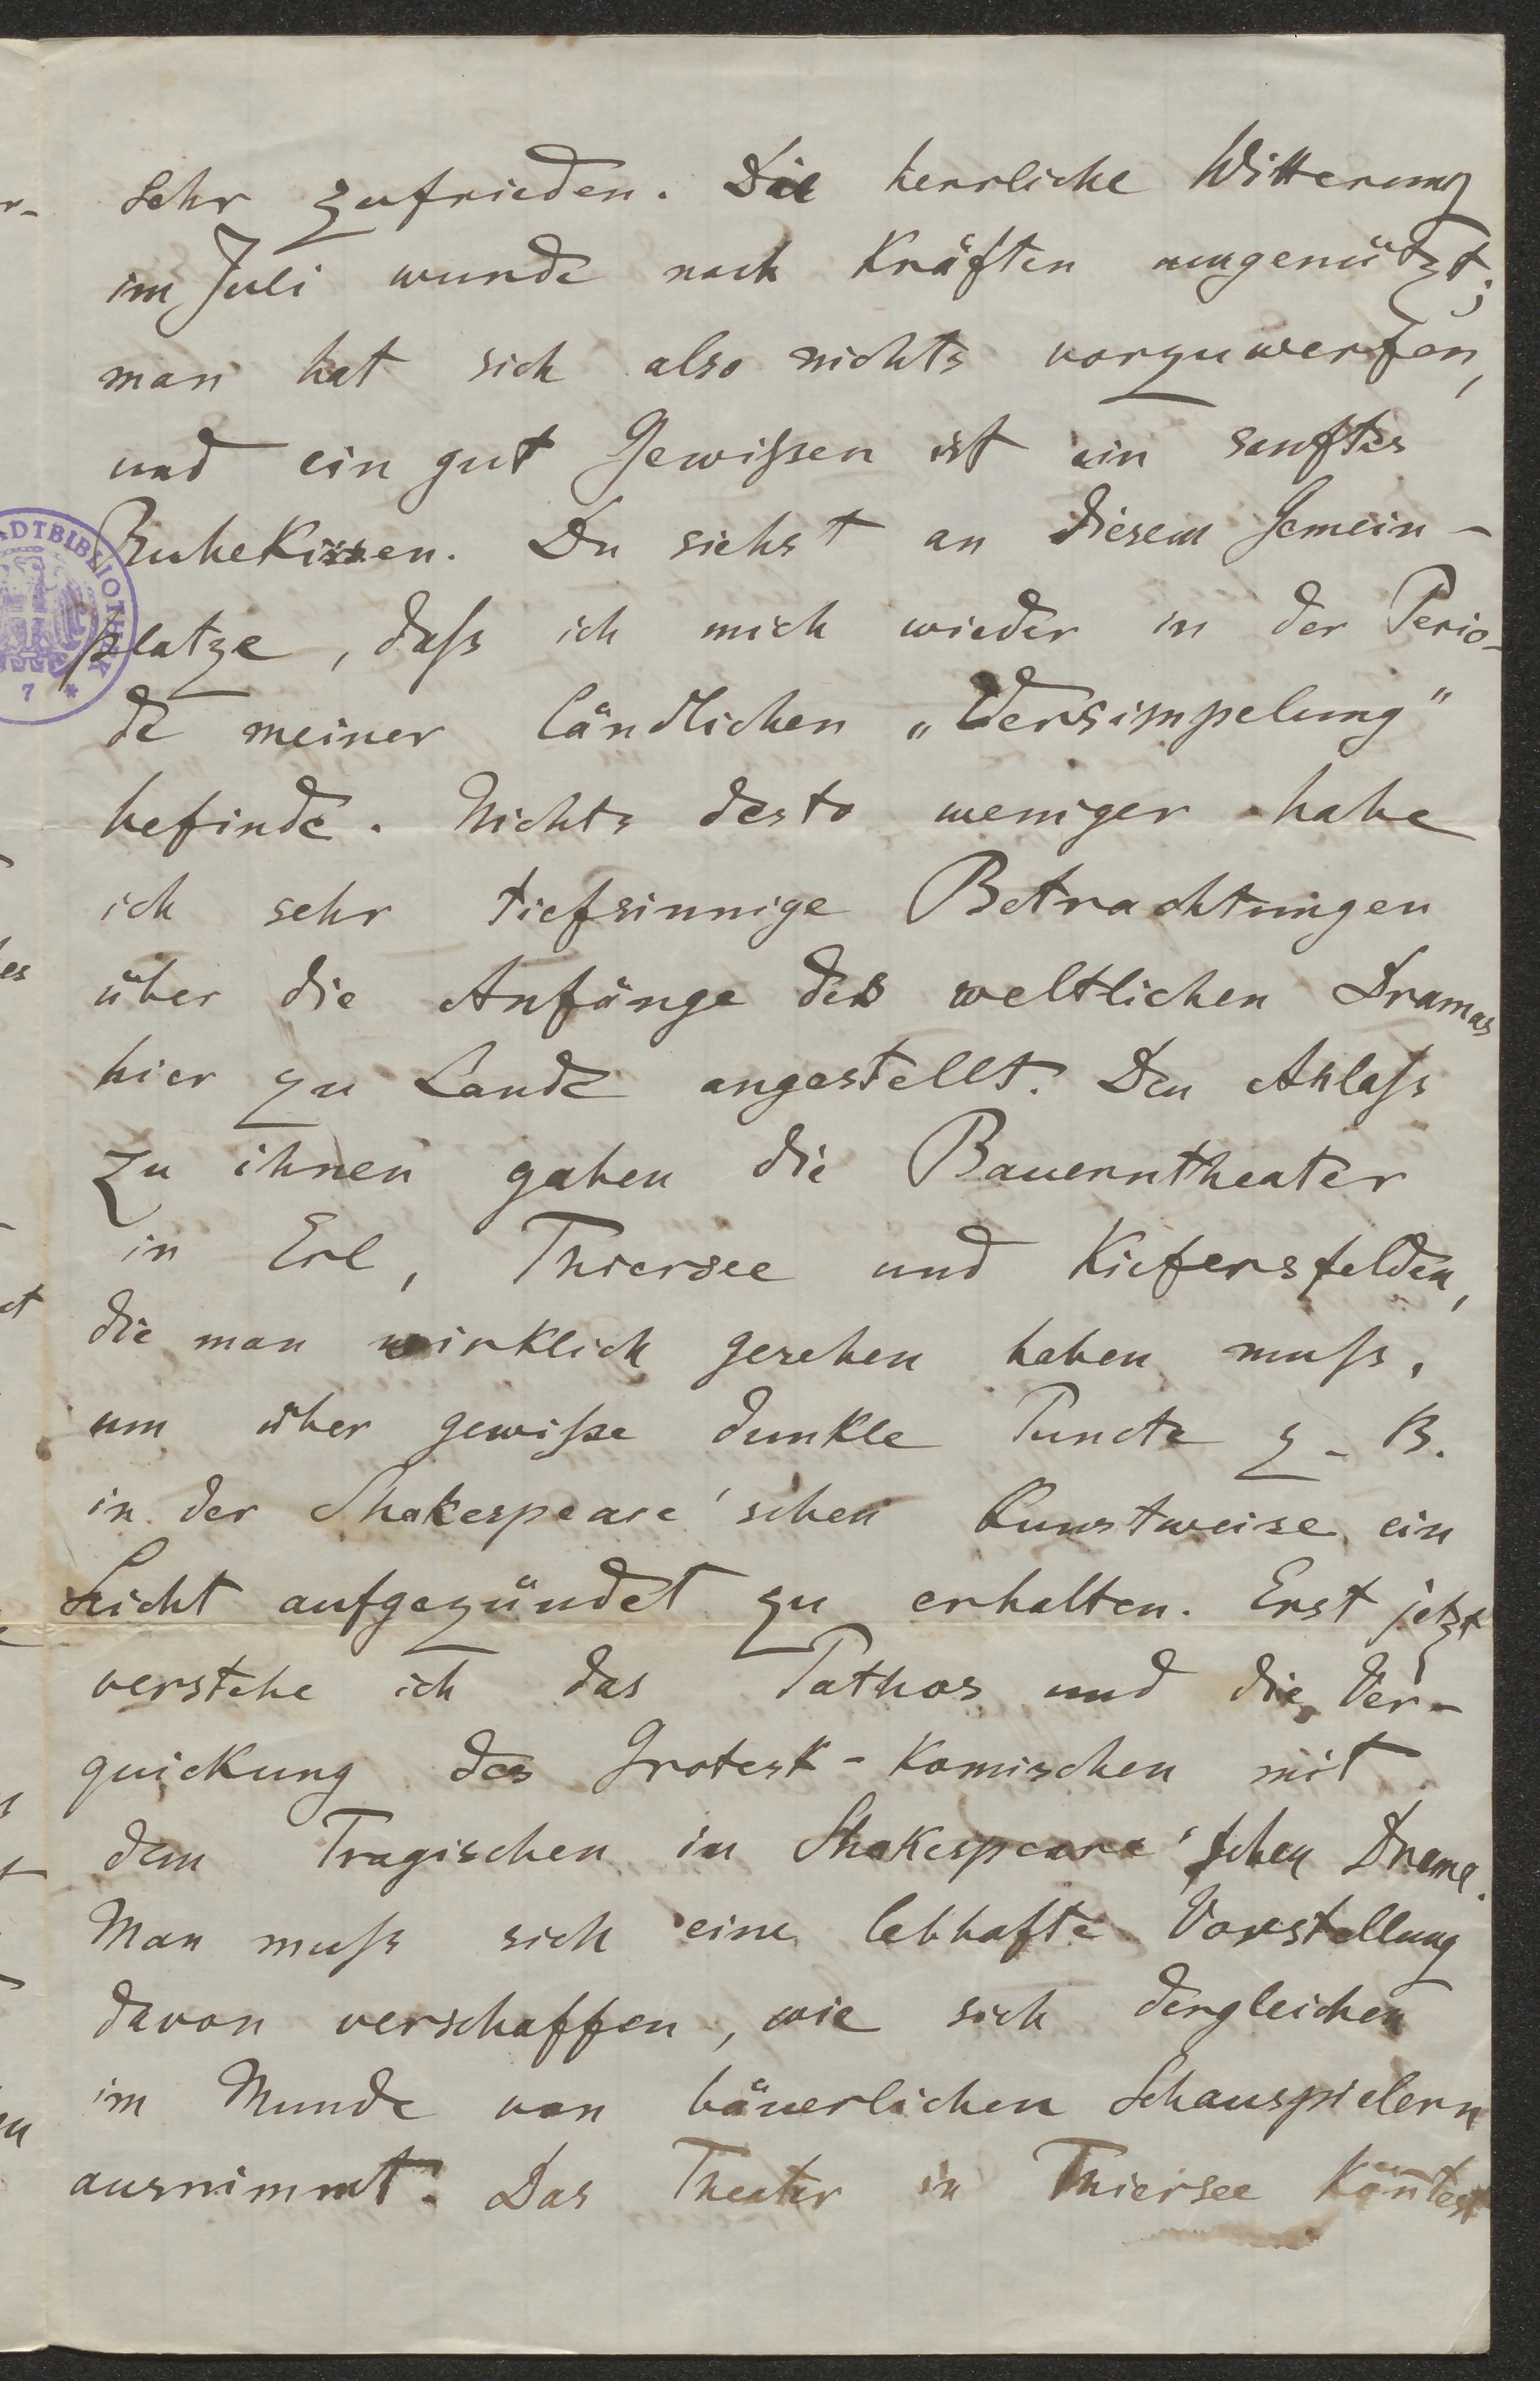 sehr zufrieden. Die herrliche Witterung
im Juli wurde nach Kräften ausgenützt;
man hat sich also nichts vorzuwerfen,
und ein gut Gewißen ist ein sanftes
Ruhekissen. Du siehst an diesem Gemein-
platze, daß ich mich wieder in der Perio-
de meiner ländlichen „Versimpelung"
befinde. Nichts desto weniger habe
ich sehr tiefsinnige Betrachtungen
über die Anfänge des weltlichen Dramas
hier zu Lande angestellt. Den Anlaß
zu ihnen gaben die Bauerntheater
in Erl, Thiersee und Kiefersfelden,
die man wirklich gesehen haben muß,
um über gewiße dunkle Puncte z. B.
in der Shakespeare'schen Kunstweise ein
Licht aufgezündet zu erhalten. Erst jetzt
verstehe ich das Pathos und die Ver-
quickung des Grotesk-Komischen mit
dem Tragischen im Shakespeare'schen Drama.
Man muß sich eine lebhafte Vorstellung
davon verschaffen, wie sich dergleichen
im Munde von bäuerlichen Schauspielern
ausnimmt. Das Theater in Thiersee könntest
ADTBIBLIOTHEK
7 *